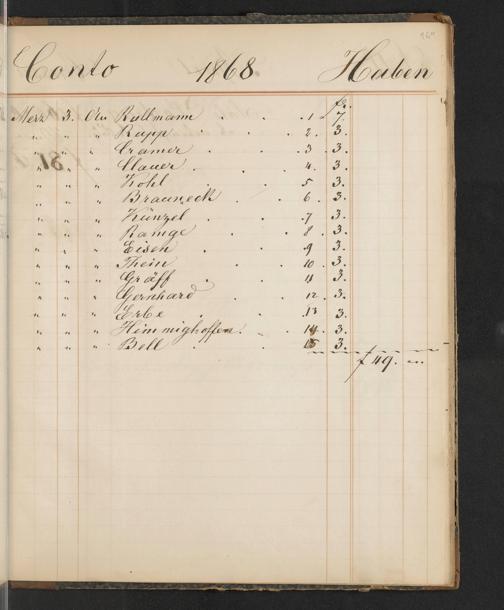 Conto 1868 Haben
fl.
Merz 3. An Kullmann . . . 1 7.
" " " " Rapp . . . 2. 3.
" " " " Cramer . . . 3 3.
" " " " Clauer . . . 4. 3.
" " " " Kohl . . . 5 3.
" " " " Brauneck . . . 6. 3.
" " " " Künzel . . . 7 3.
" " " " Ramge . . . 8 3.
" " " " Eisen . . . 9 3.
" " " " Thein . . . 10. 3.
" " " " Gräff . . . 11 3.
" " " " Gernhard . . . 12 3.
" " " " Erbe . . . 13 3.
" " " " Himmighoffen . . 14. 3.
" " " " Bell . . . 15 3.
f 49.